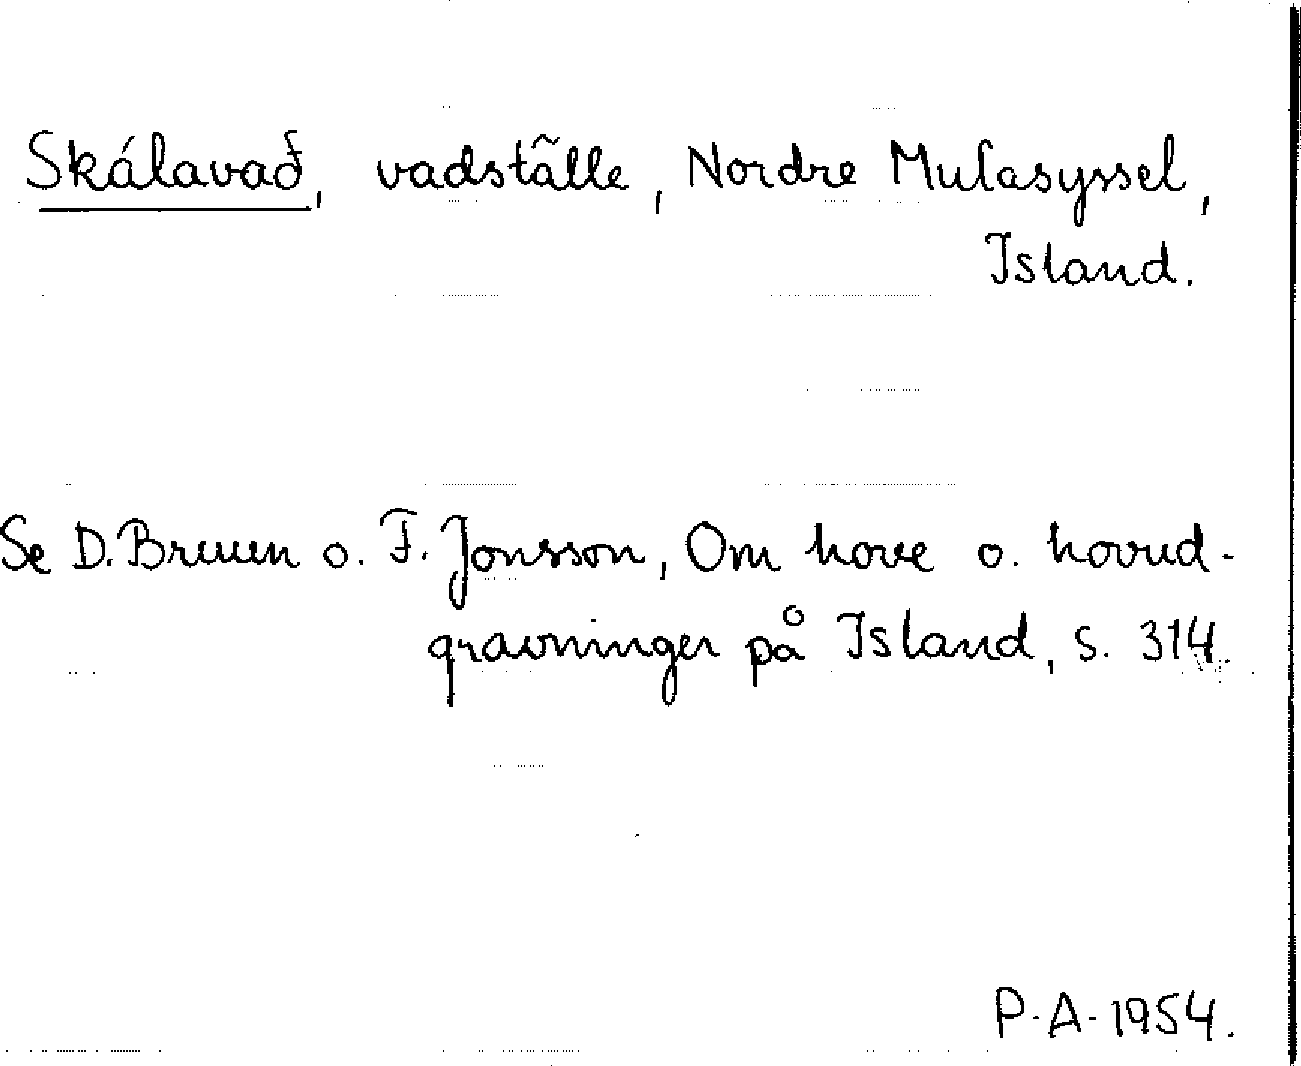 Skálavað, vadställe, Nordre Mulasyssel,
Island.
Se D. Bruun o. F. Jonsson, Om hove o. hovud-
gravninger på Island, s. 314.
P. A. 1954.